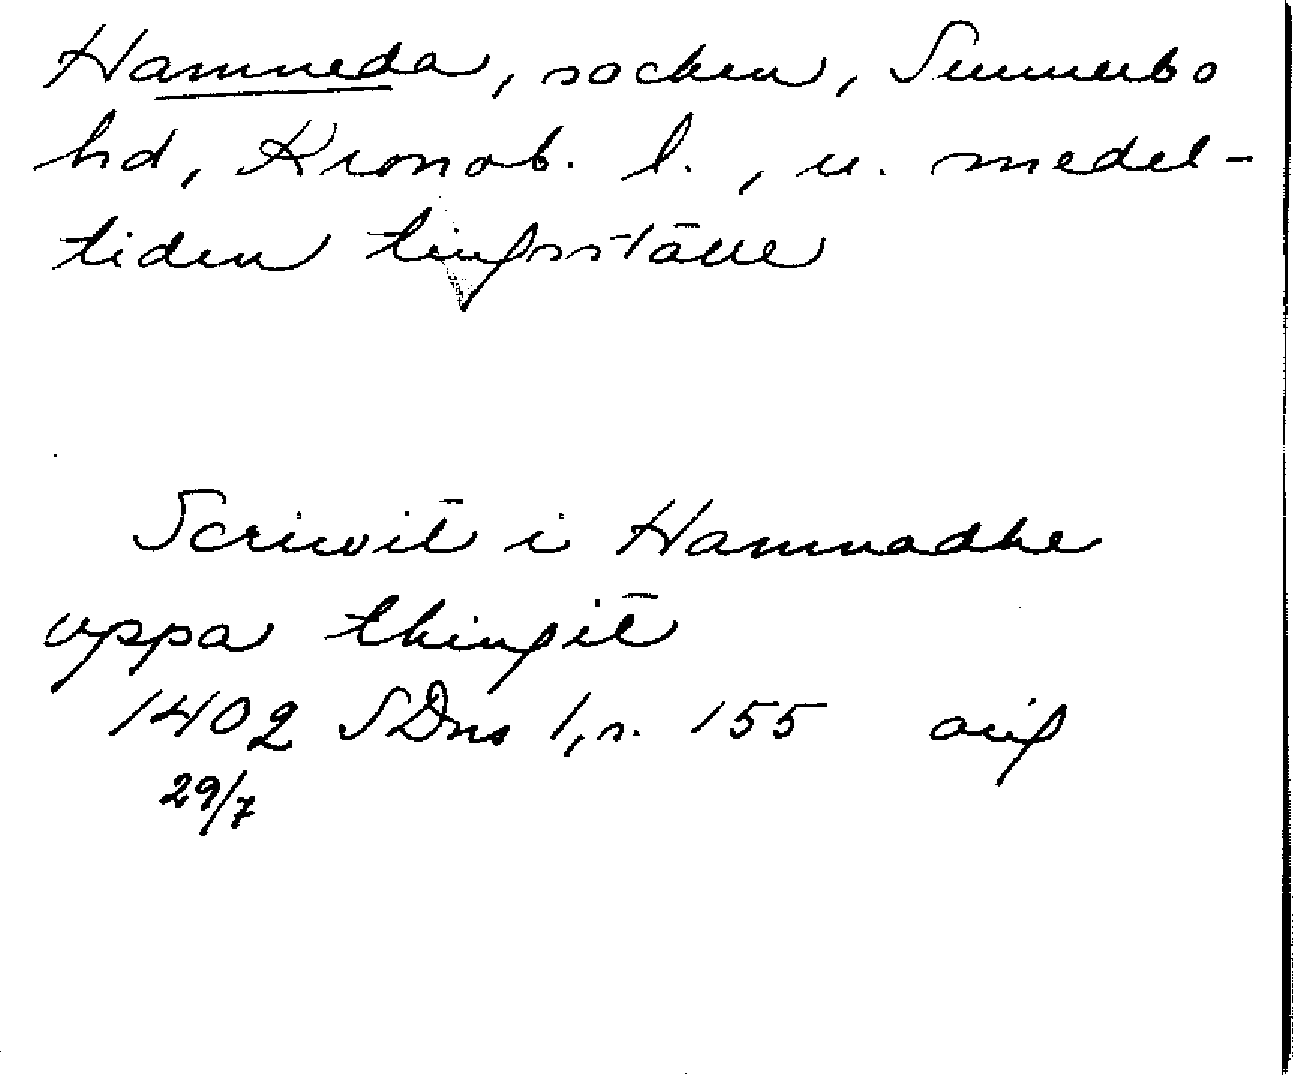 Hamneda, socken, Sunnerbo
hd, Kronob. l., u. medel-
tiden tingsställe
Scriwit i Hamnadhe
uppa thingit
1402 SDns 1, s. 155 orig
29/7